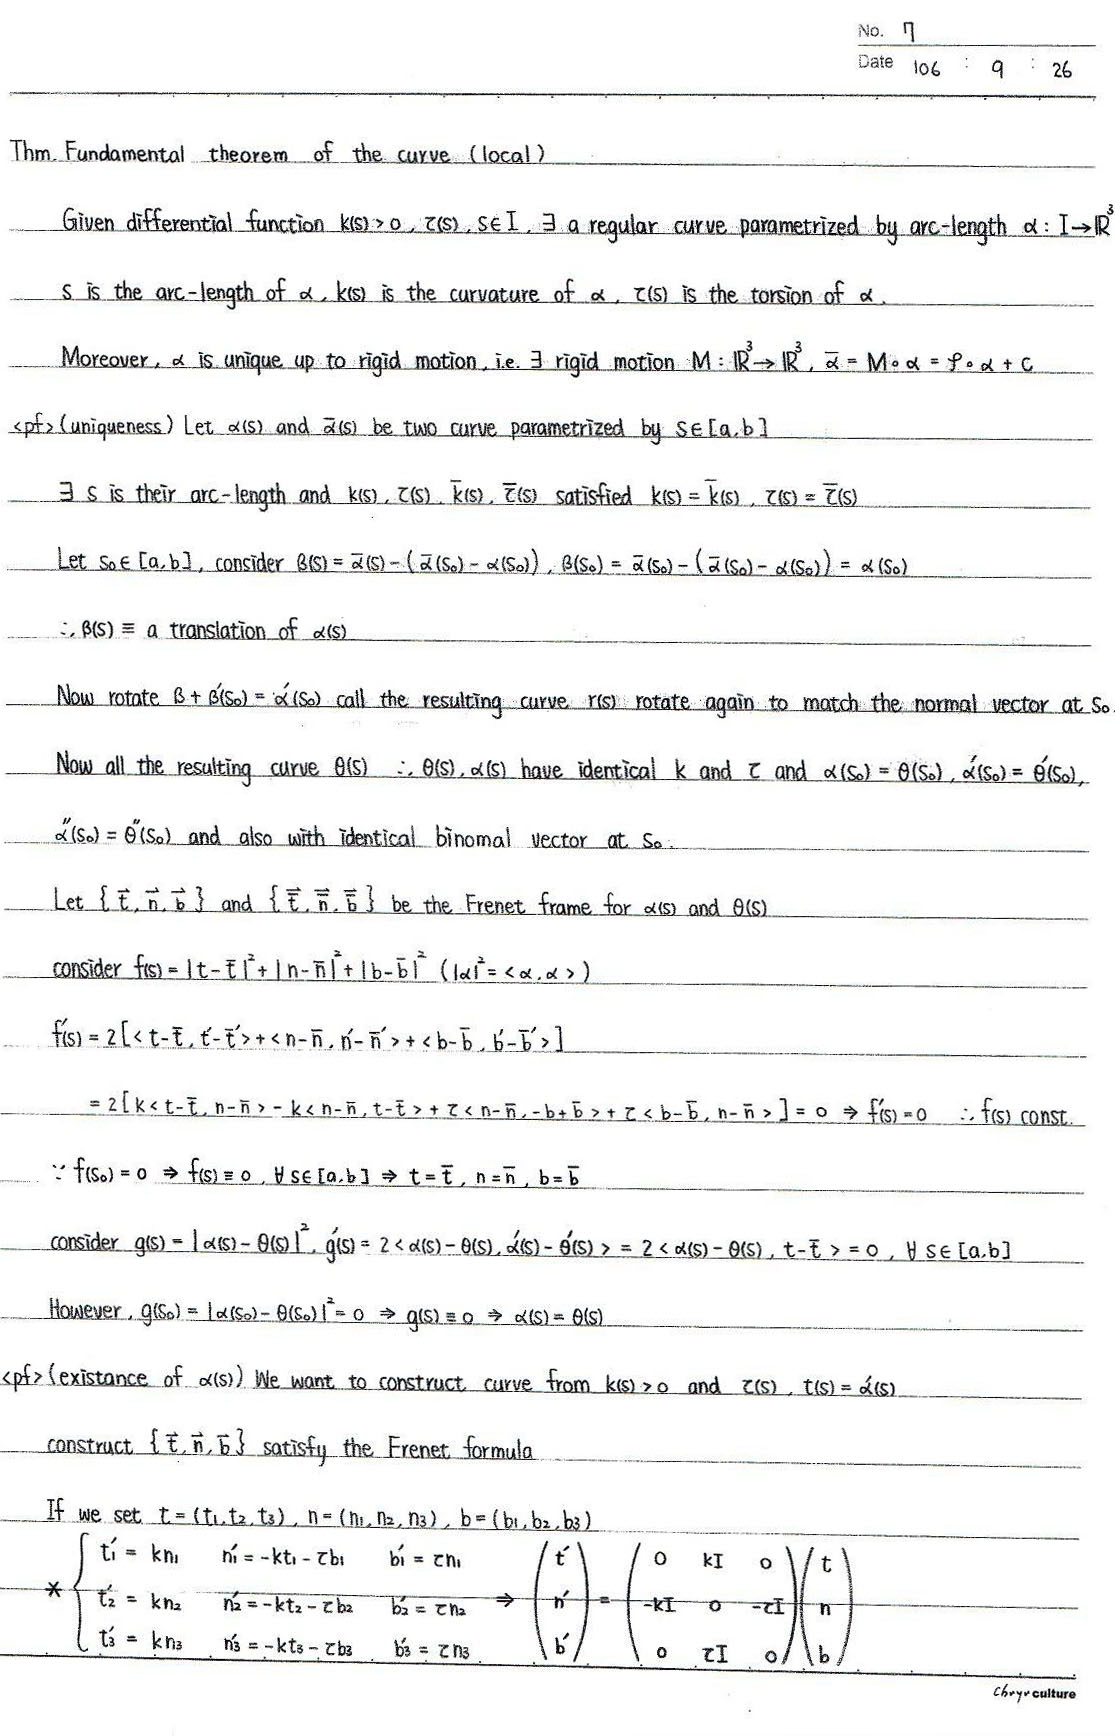 No. 7
Date 106 : 9 : 26
Thm. Fundamental theorem of the curve (local)
Given differential function k(s)>0, τ(s), s∈I, ∃ a regular curve parametrized by arc-length α: I→ℝ³
s is the arc-length of α, k(s) is the curvature of α, τ(s) is the torsion of α.
Moreover, α is unique up to rigid motion, i.e. ∃ rigid motion M: ℝ³→ℝ³, ᾱ = M∘α = ρ∘α + c
<pf>(uniqueness) Let α(s) and ᾱ(s) be two curve parametrized by s∈[a,b]
∃ s is their arc-length and k(s), τ(s), k̄(s), τ̄(s) satisfied k(s) = k̄(s), τ(s) = τ̄(s)
Let s₀∈[a,b], consider β(s) = ᾱ(s) - (ᾱ(s₀) - α(s₀)), β(s₀) = ᾱ(s₀) - (ᾱ(s₀) - α(s₀)) = α(s₀)
∴ β(s) ≡ a translation of α(s)
Now rotate β + β'(s₀) = α'(s₀) call the resulting curve r(s) rotate again to match the normal vector at s₀.
Now all the resulting curve θ(s) ∴ θ(s), α(s) have identical k and τ and α(s₀) = θ(s₀), α'(s₀) = θ'(s₀),
α''(s₀) = θ''(s₀) and also with identical binomal vector at s₀.
Let {t⃗, n⃗, b⃗} and {t̄⃗, n̄⃗, b̄⃗} be the Frenet frame for α(s) and θ(s)
consider f(s) = |t-t̄|² + |n-n̄|² + |b-b̄|² (|α|² = <α,α>)
f'(s) = 2[<t-t̄, t'-t̄'> + <n-n̄, n'-n̄'> + <b-b̄, b'-b̄'>]
= 2[k<t-t̄, n-n̄> - k<n-n̄, t-t̄> + τ<n-n̄, -b+b̄> + τ<b-b̄, n-n̄>] = 0 ⇒ f'(s) = 0 ∴ f(s) const.
∵ f(s₀) = 0 ⇒ f(s) ≡ 0, ∀ s∈[a,b] ⇒ t = t̄, n = n̄, b = b̄
consider g(s) = |α(s) - θ(s)|², g'(s) = 2<α(s) - θ(s), α'(s) - θ'(s)> = 2<α(s) - θ(s), t-t̄> = 0, ∀ s∈[a,b]
However, g(s₀) = |α(s₀) - θ(s₀)|² = 0 ⇒ g(s) ≡ 0 ⇒ α(s) = θ(s)
<pf>(existance of α(s)) We want to construct curve from k(s)>0 and τ(s), t(s) = α'(s)
construct {t⃗, n⃗, b⃗} satisfy the Frenet formula
If we set t = (t₁,t₂,t₃), n = (n₁,n₂,n₃), b = (b₁,b₂,b₃)
t₁' = kn₁ n₁' = -kt₁ - τb₁ b₁' = τn₁ (t' (0 kI 0 (t
* t₂' = kn₂ n₂' = -kt₂ - τb₂ b₂' = τn₂ ⇒ n' = -kI 0 -τI n
t₃' = kn₃ n₃' = -kt₃ - τb₃ b₃' = τn₃ b') 0 τI 0) b)
Chryr culture